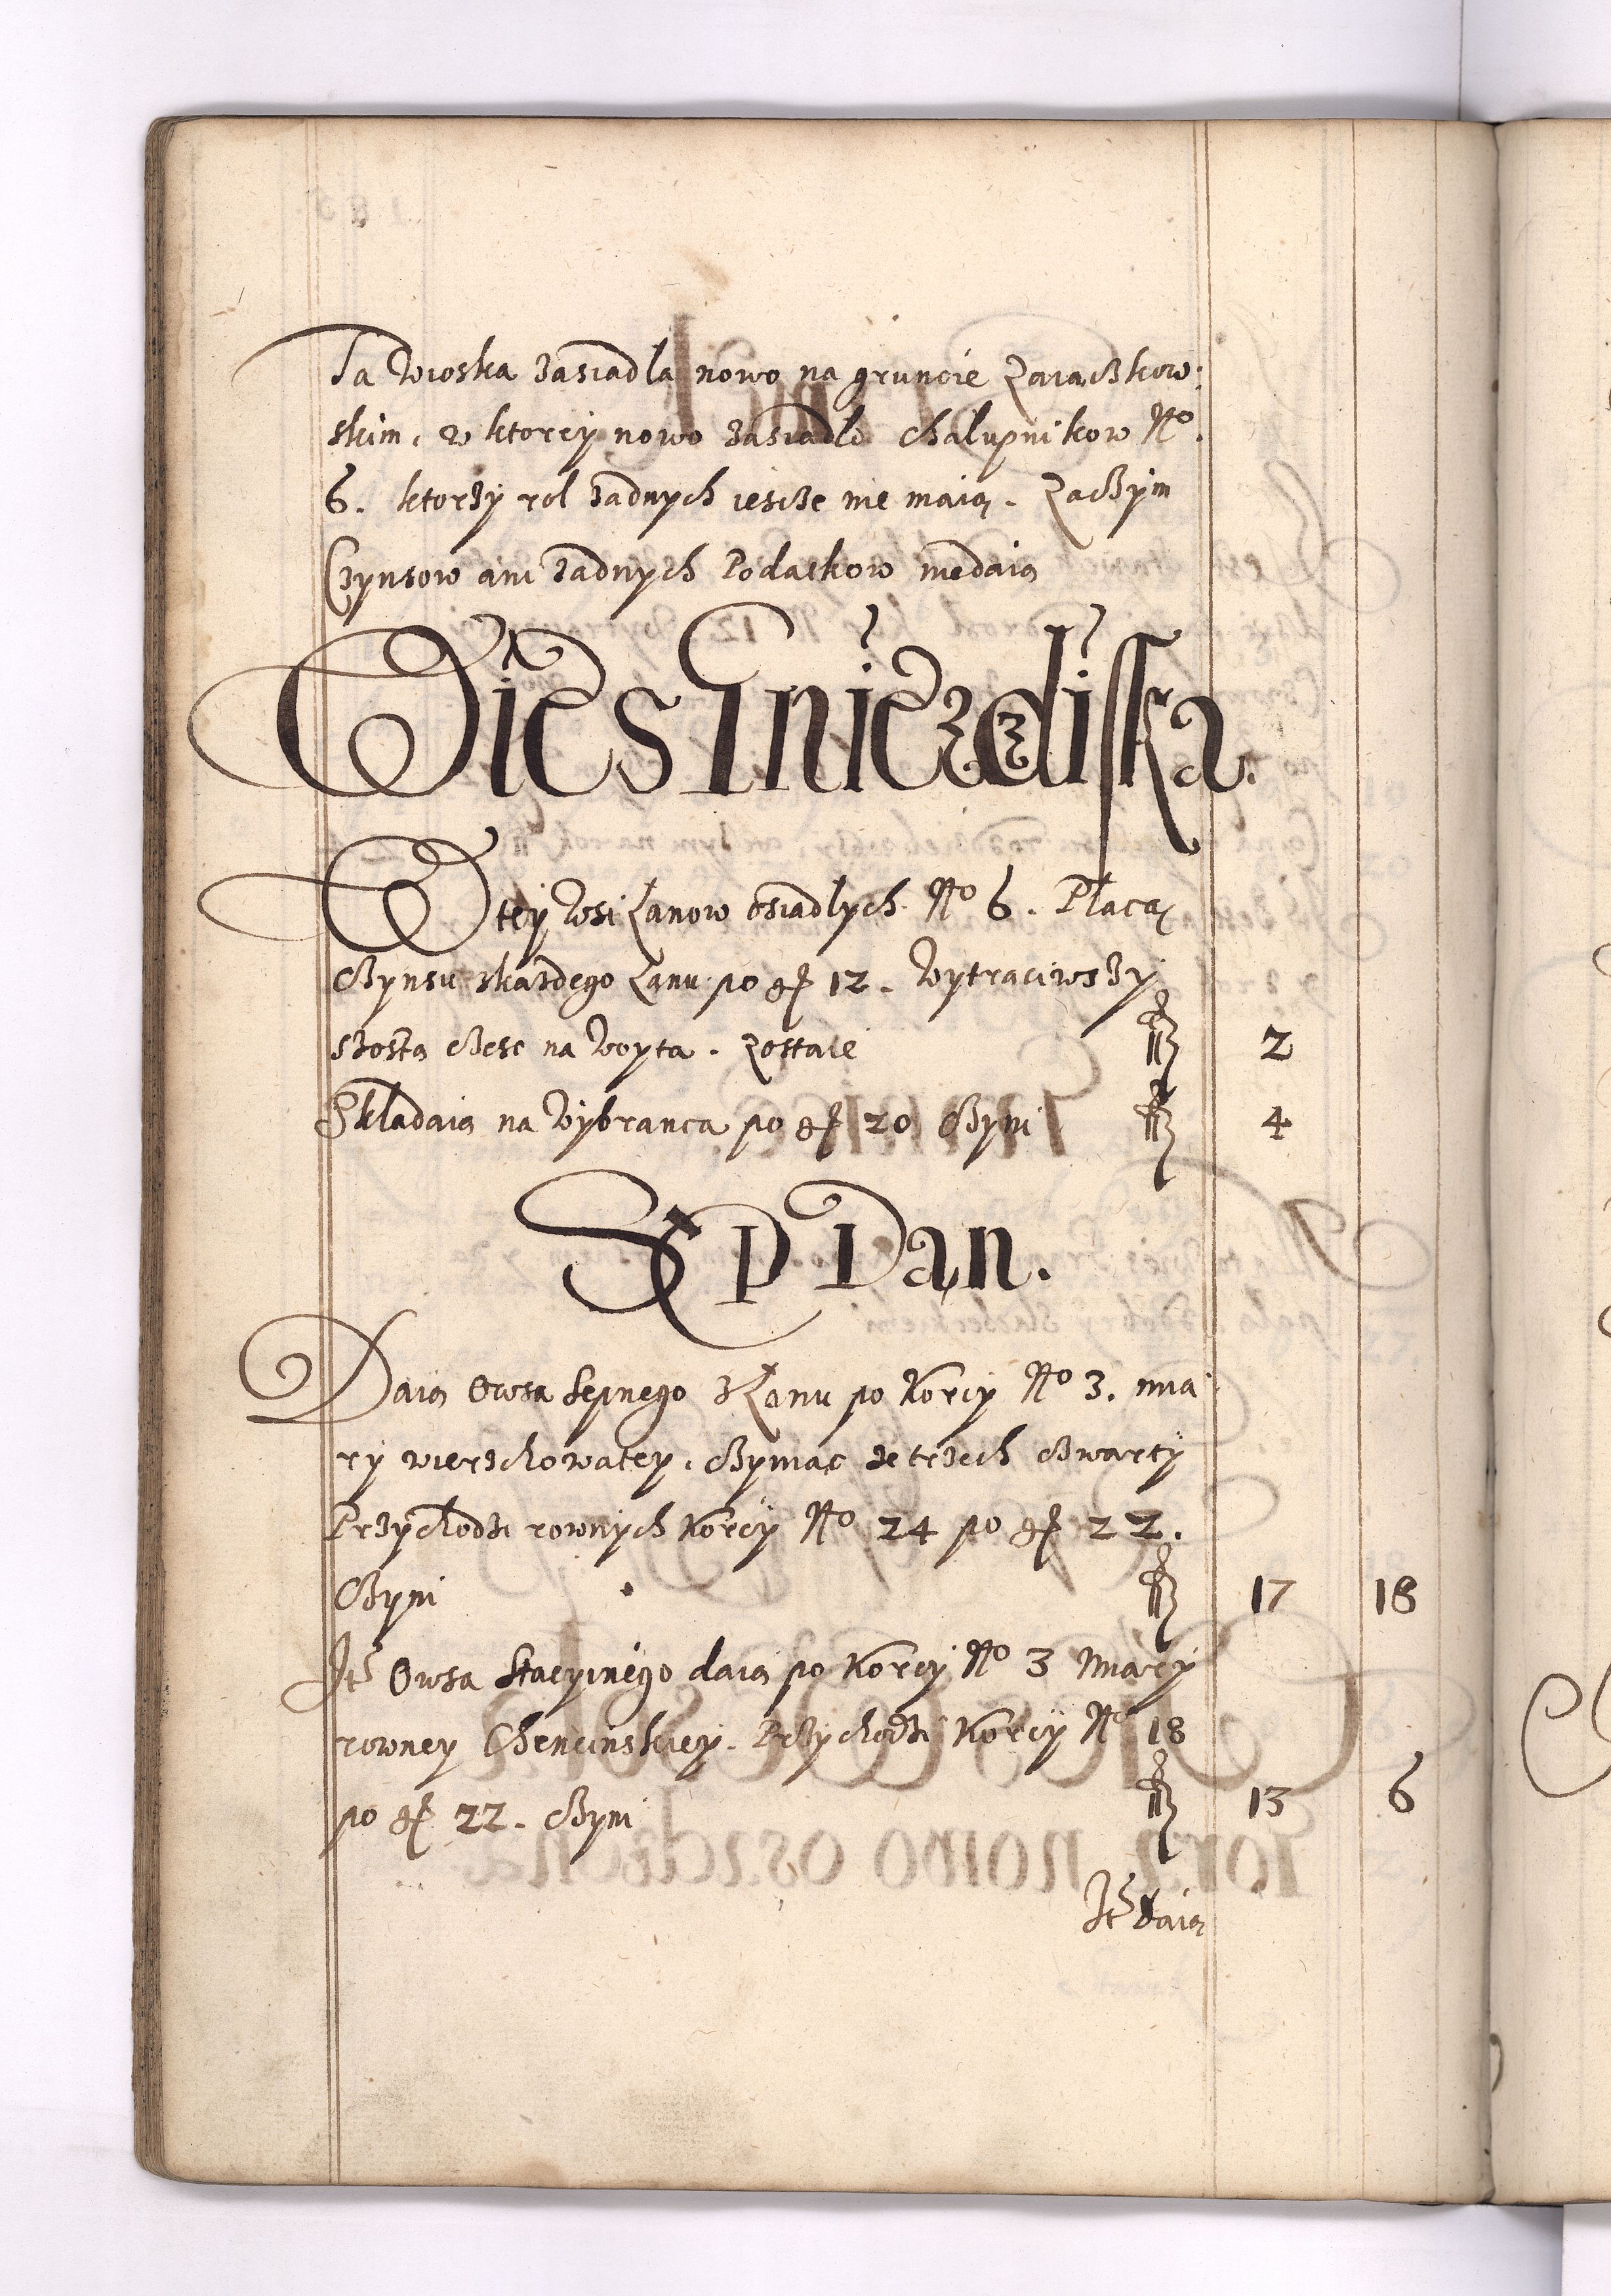 Ta wioska zasiadla nowo na gruncie Zaiaczkow:
skim, w ktorey nowo zasiadlo chalupnikow No.
6. ktorzy rol zadnych iescze nie maią. Zaczym
Czynsow ani zadnych Podatkow niedaią
Wies Gniezdziska.
W tey wsi Łanow osiadlych No 6. Płacą
czynsu skazdego Łanu po gr 12. wytraciwszy
szostą czesc na woyta. Zostaie fl 2
Składaią na wybranca po gr 20 czyni fl 4
SEP Dan.
Daią Owsa Sepnego z Łanu po Korcy No 3. mia
ry wierzchowatey, czyniac ze trzech czwarty
Przychodzi rownych Korcy No 24 po gr 22.
Czyni fl 17 18
Itm Owsa Stacyinego daią po Korcy No 3 miary
rowney Chencinskiey. Przychodzi Korcy No 18
po gr 22. czyni fl 13 6
Itm daią